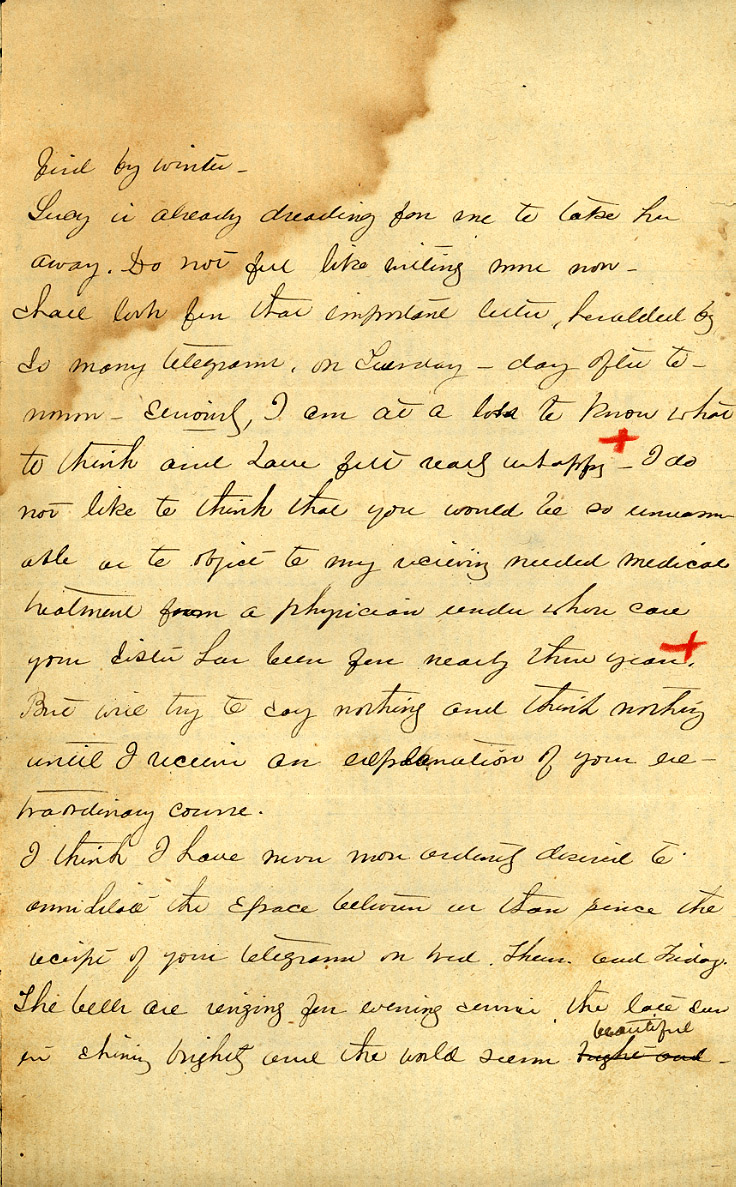 tired by winter -
Lucy is already dreading for me to take her
away. Do not feel like writing more now -
shall look for that important letter, heralded by
so many telegrams, on Tuesday - day after to-
morrow - Seriously, I am at a loss to know what
to think and have felt really unhappy - I do
not like to think that you would be so unreason-
able as to object to my receiving needed medical
treatment from a physician under whose care
your sister has been for nearly three years.
But will try to say nothing and think nothing
until I receive an explanation of your ex-
traordinary course.
I think I have never more ardently desired to
annihilate the space between us than since the
receipt of your telegrams on Wed. Thurs. and Friday.
The bells are ringing for evening service, the late sun
is shining brightly and the world seems beautiful ~~bright and~~ -